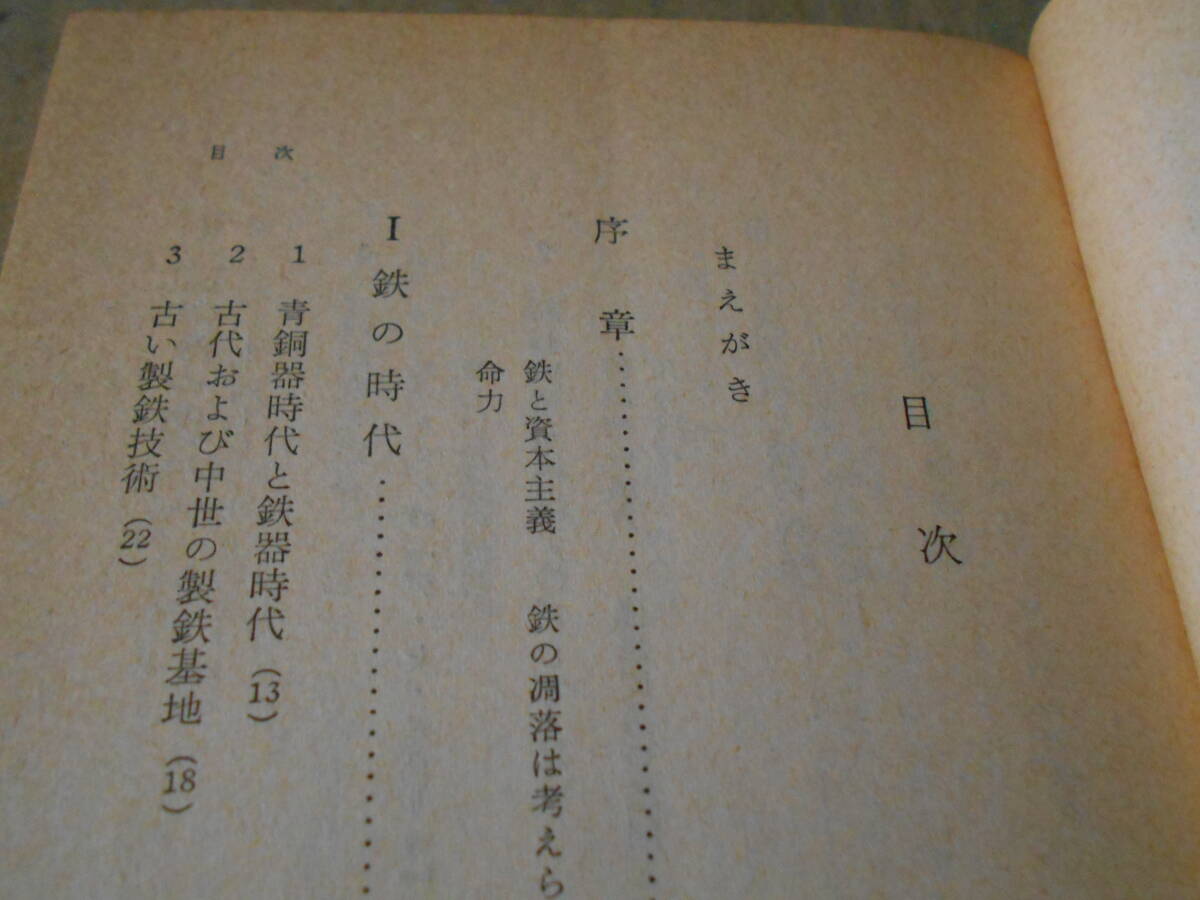 目次
まえがき
序章……………………
鉄と資本主義　鉄の凋落は考えら
命力
I 鉄の時代……………………
1 青銅器時代と鉄器時代 (13)
2 古代および中世の製鉄基地 (18)
3 古い製鉄技術 (22)
目次